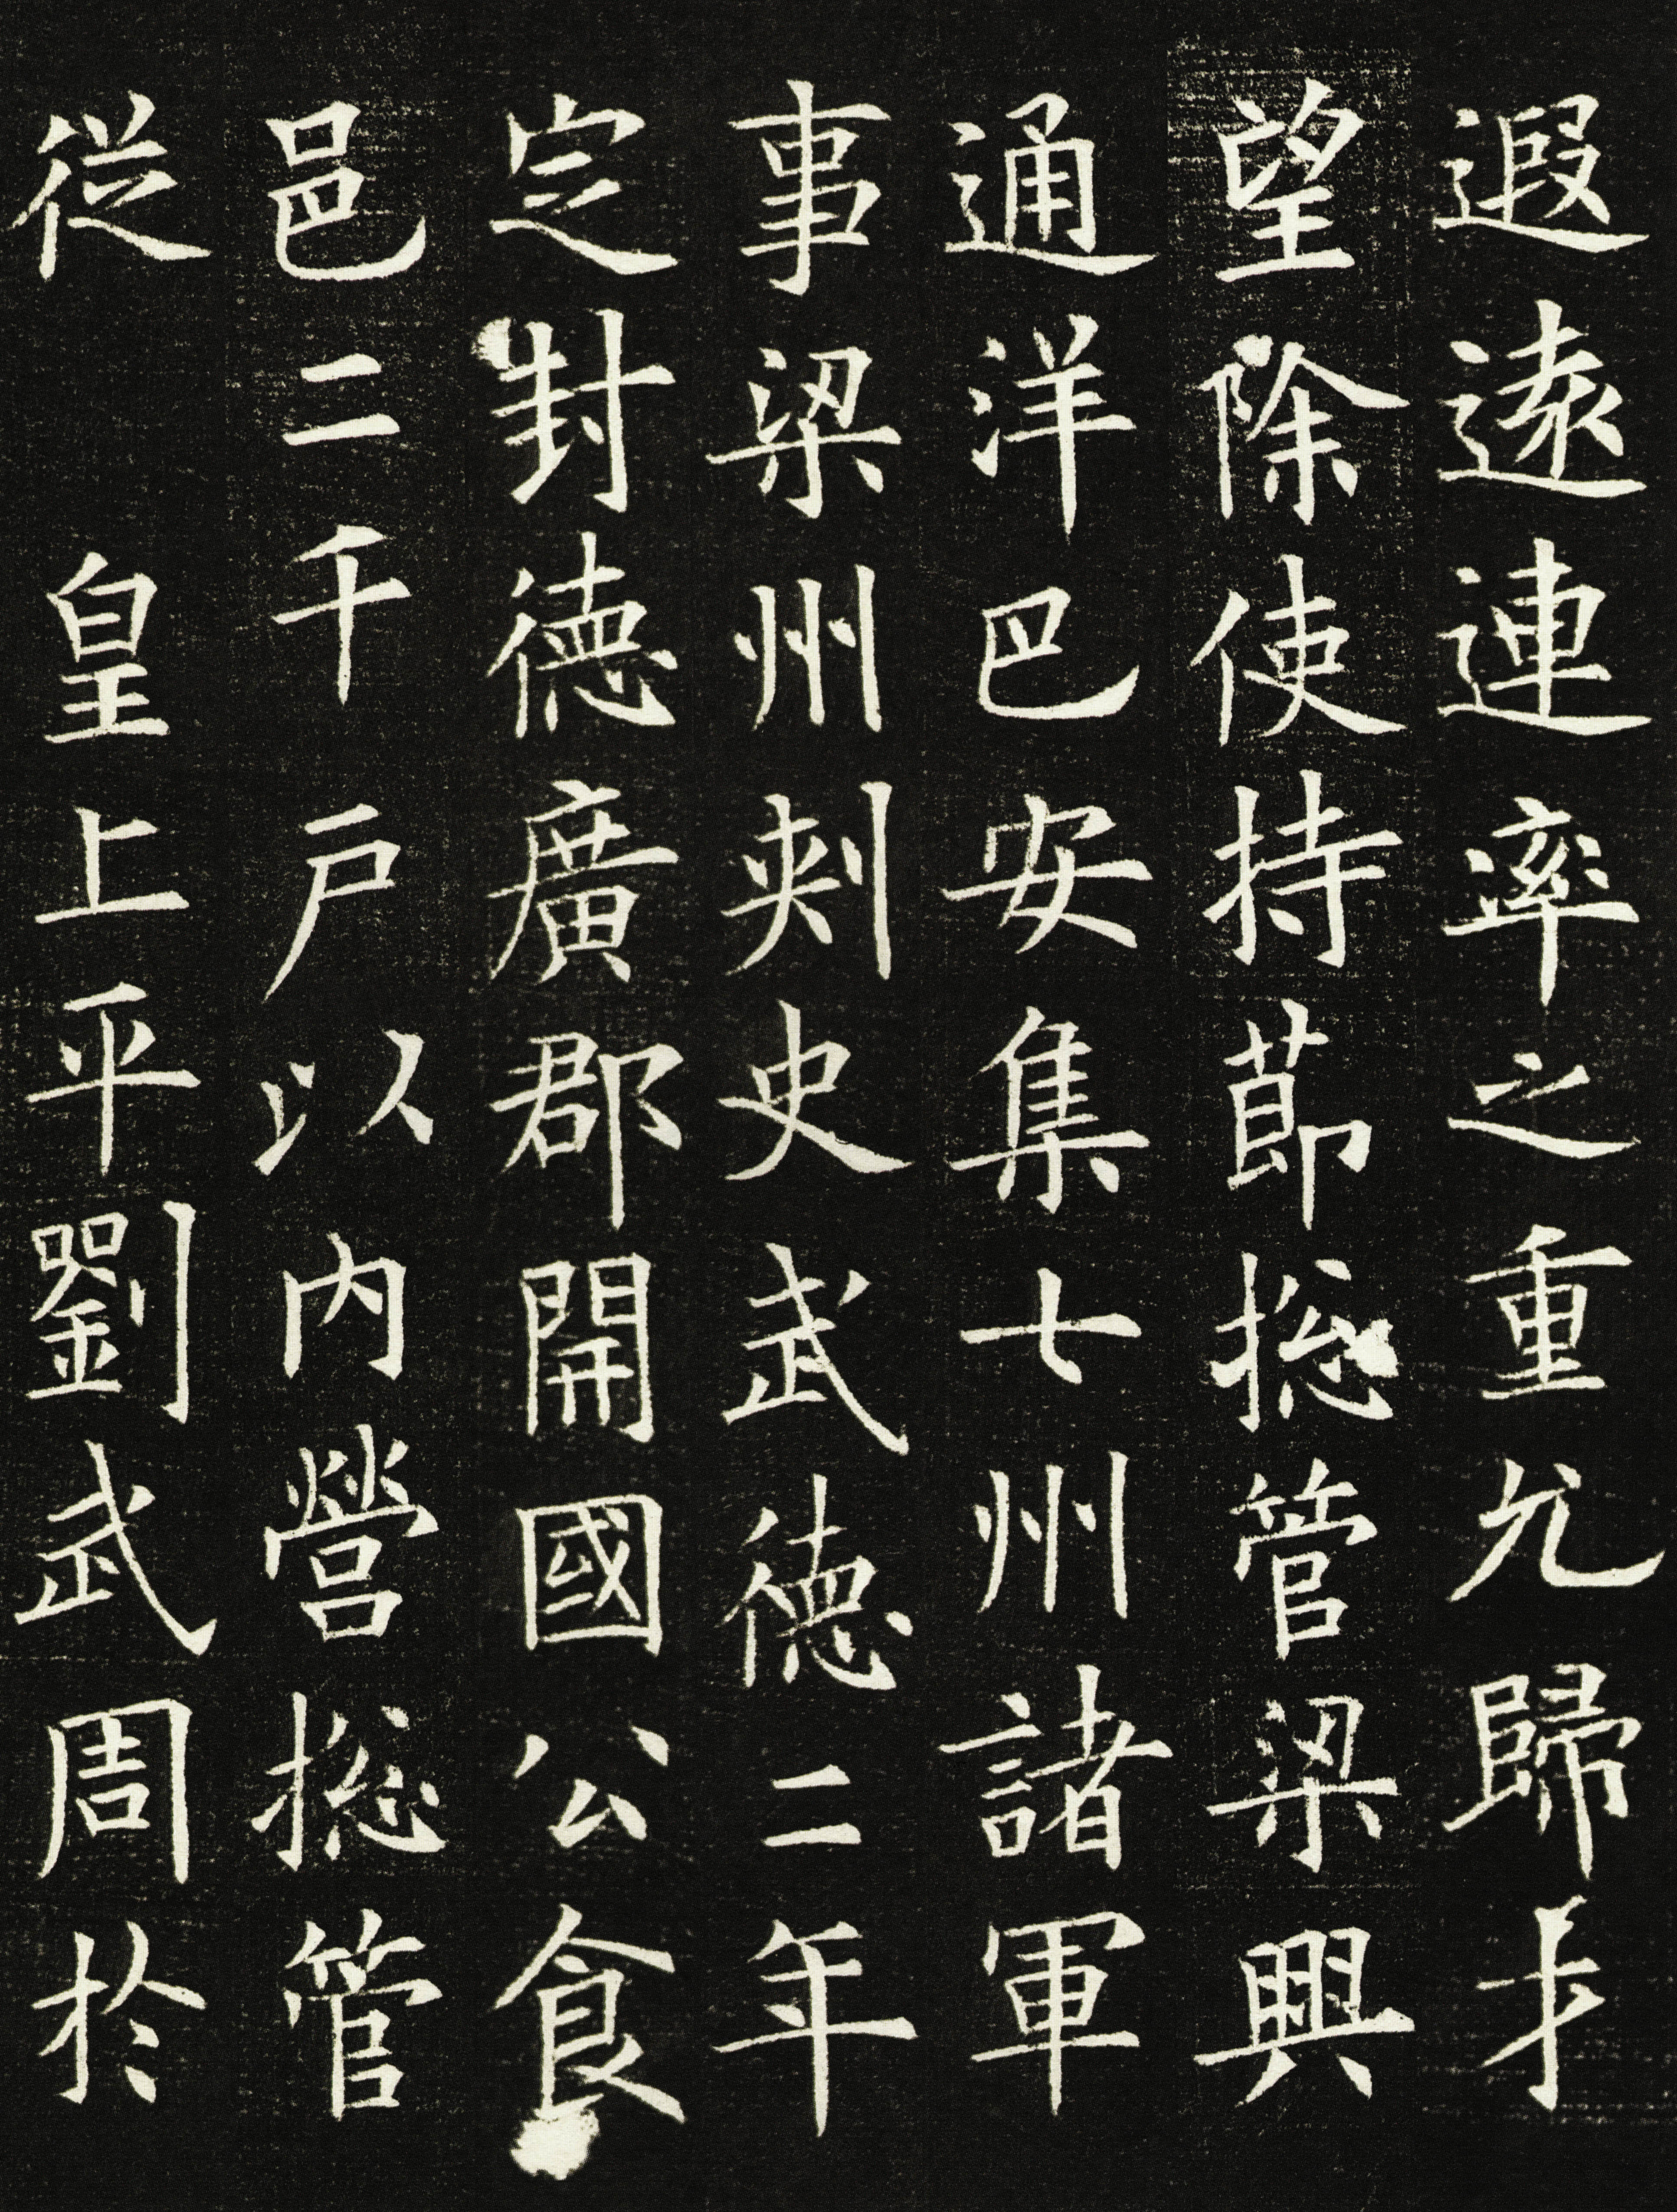 遐遠連率之重允歸才
望除使持莭捴管梁興
通洋巴安集七州諸軍
事梁州刾史武德二年
定封德廣郡開國公食
邑二千戶以內營捴管
從 皇上平劉武周於